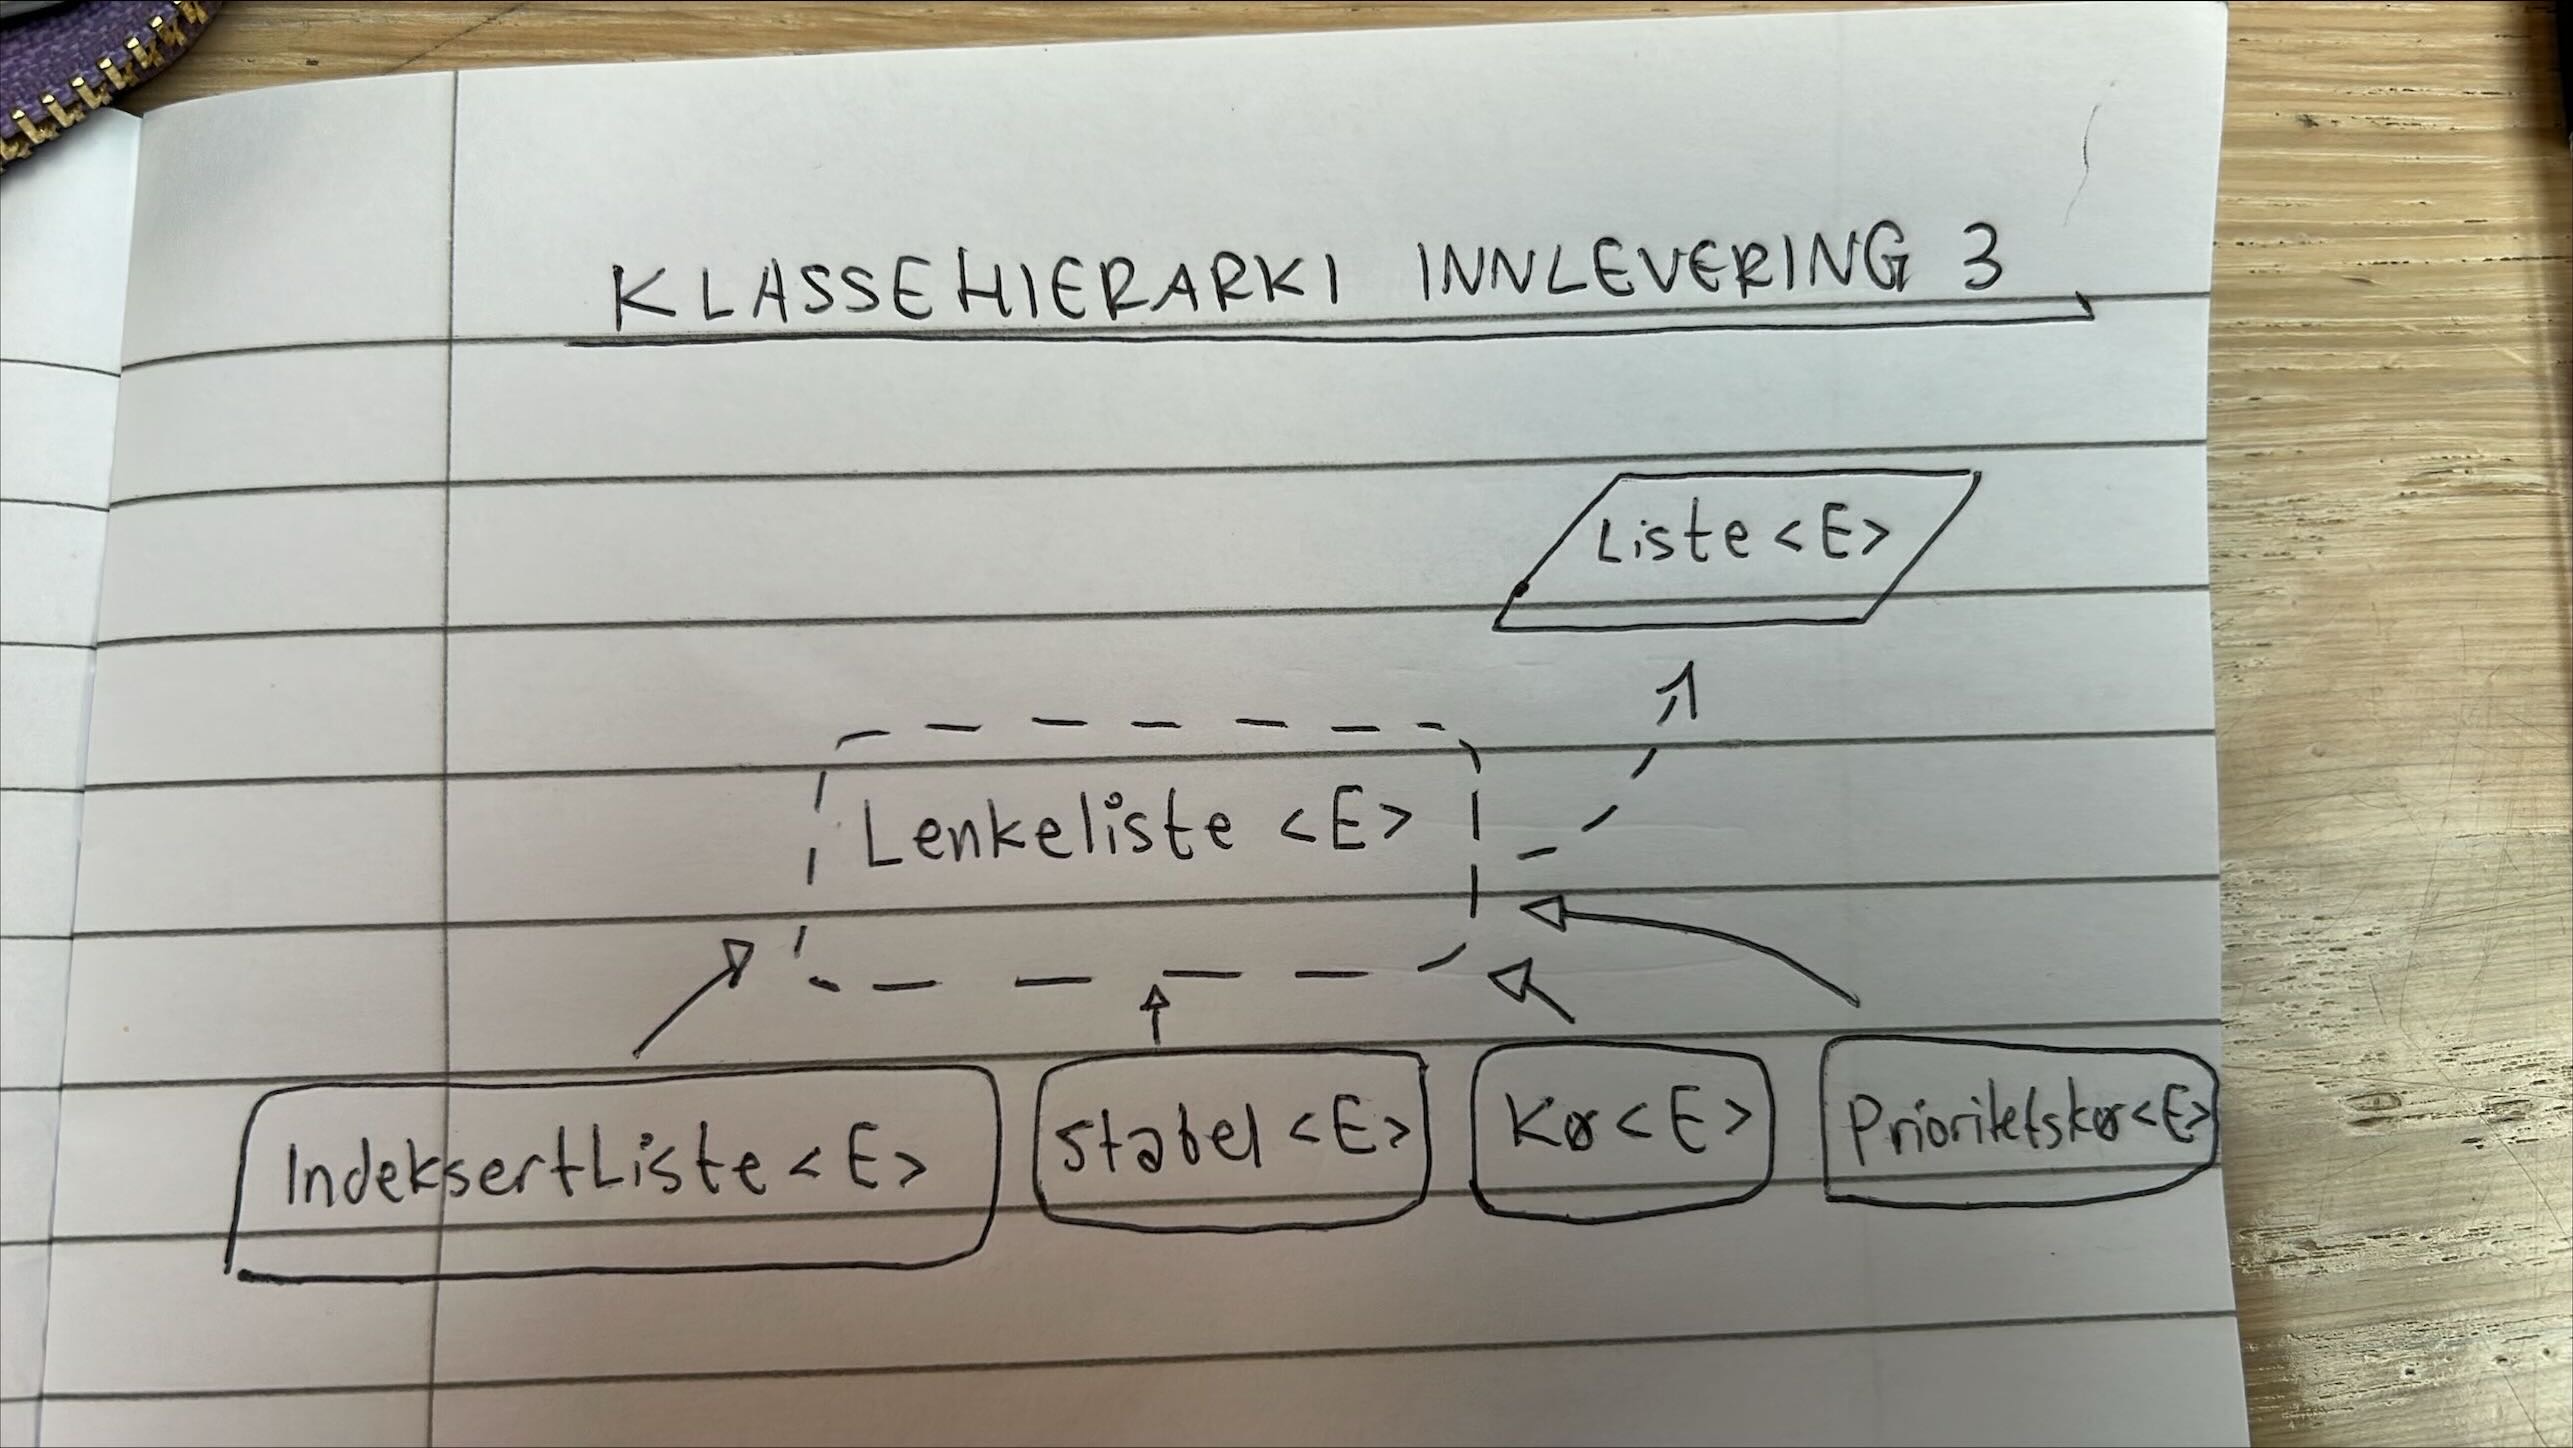 KLASSEHIERARKI INNLEVERING 3
Liste <E>
Lenkeliste <E>
IndeksertListe <E>
Stabel <E>
Kø <E>
Prioritetskø <E>